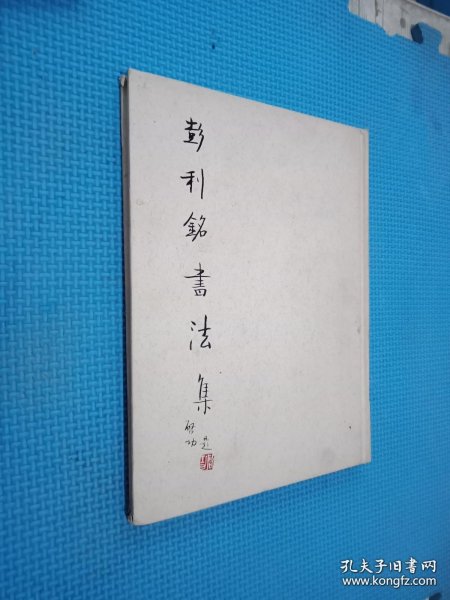 彭利銘書法集
啓功題
孔夫子旧书网
www.kongfz.com